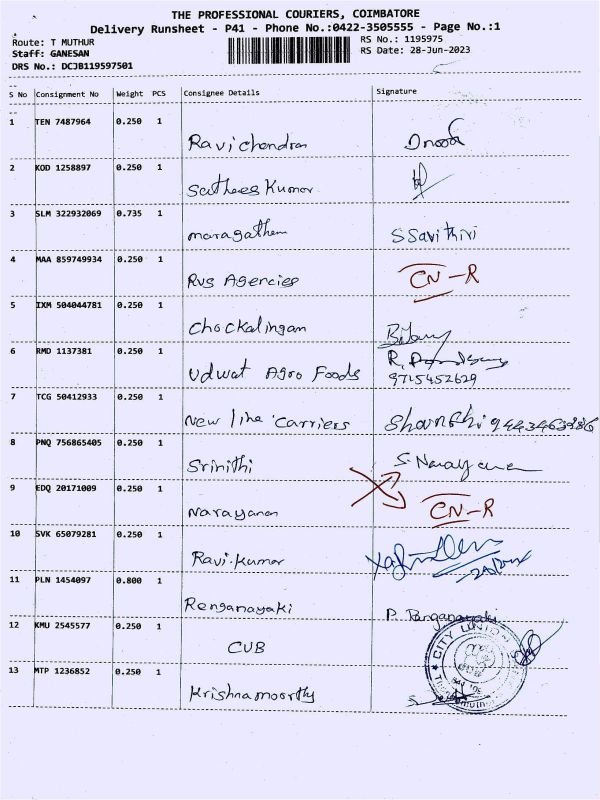 THE PROFESSIONAL COURIERS, COIMBATORE
Delivery Runsheet - P41 - Phone No.:0422-3505555 - Page No.:1
Route: T MUTHUR RS No.: 1195975
Staff: GANESAN RS Date: 28-Jun-2023
DRS No.: DCJB119597501
S No Consignment No Weight PCS Consignee Details Signature
1 TEN 7487964 0.250 1
Ravichandran
2 KOD 1258897 0.250 1
Sathees Kumar
3 SLM 322932069 0.735 1
maragatham SSavithiri
4 MAA 859749934 0.250 1
Rvs Agencies CN-R
5 IXM 504044781 0.250 1
Chockalingam
6 RMD 1137381 0.250 1 R.
Udwat Agro Foods 9715452629
7 TCG 50412933 0.250 1
New line Carriers
8 PNQ 756865405 0.250 1
Srinithi S. Narayana
9 EDQ 20171009 0.250 1
Narayanan CN-R
10 SVK 65079281 0.250 1
Ravi.kumar
11 PLN 1454097 0.800 1
Renganayaki P. Ranganayaki
12 KMU 2545577 0.250 1
CUB CITY UNION
13 MTP 1236852 0.250 1
Krishnamoorthy